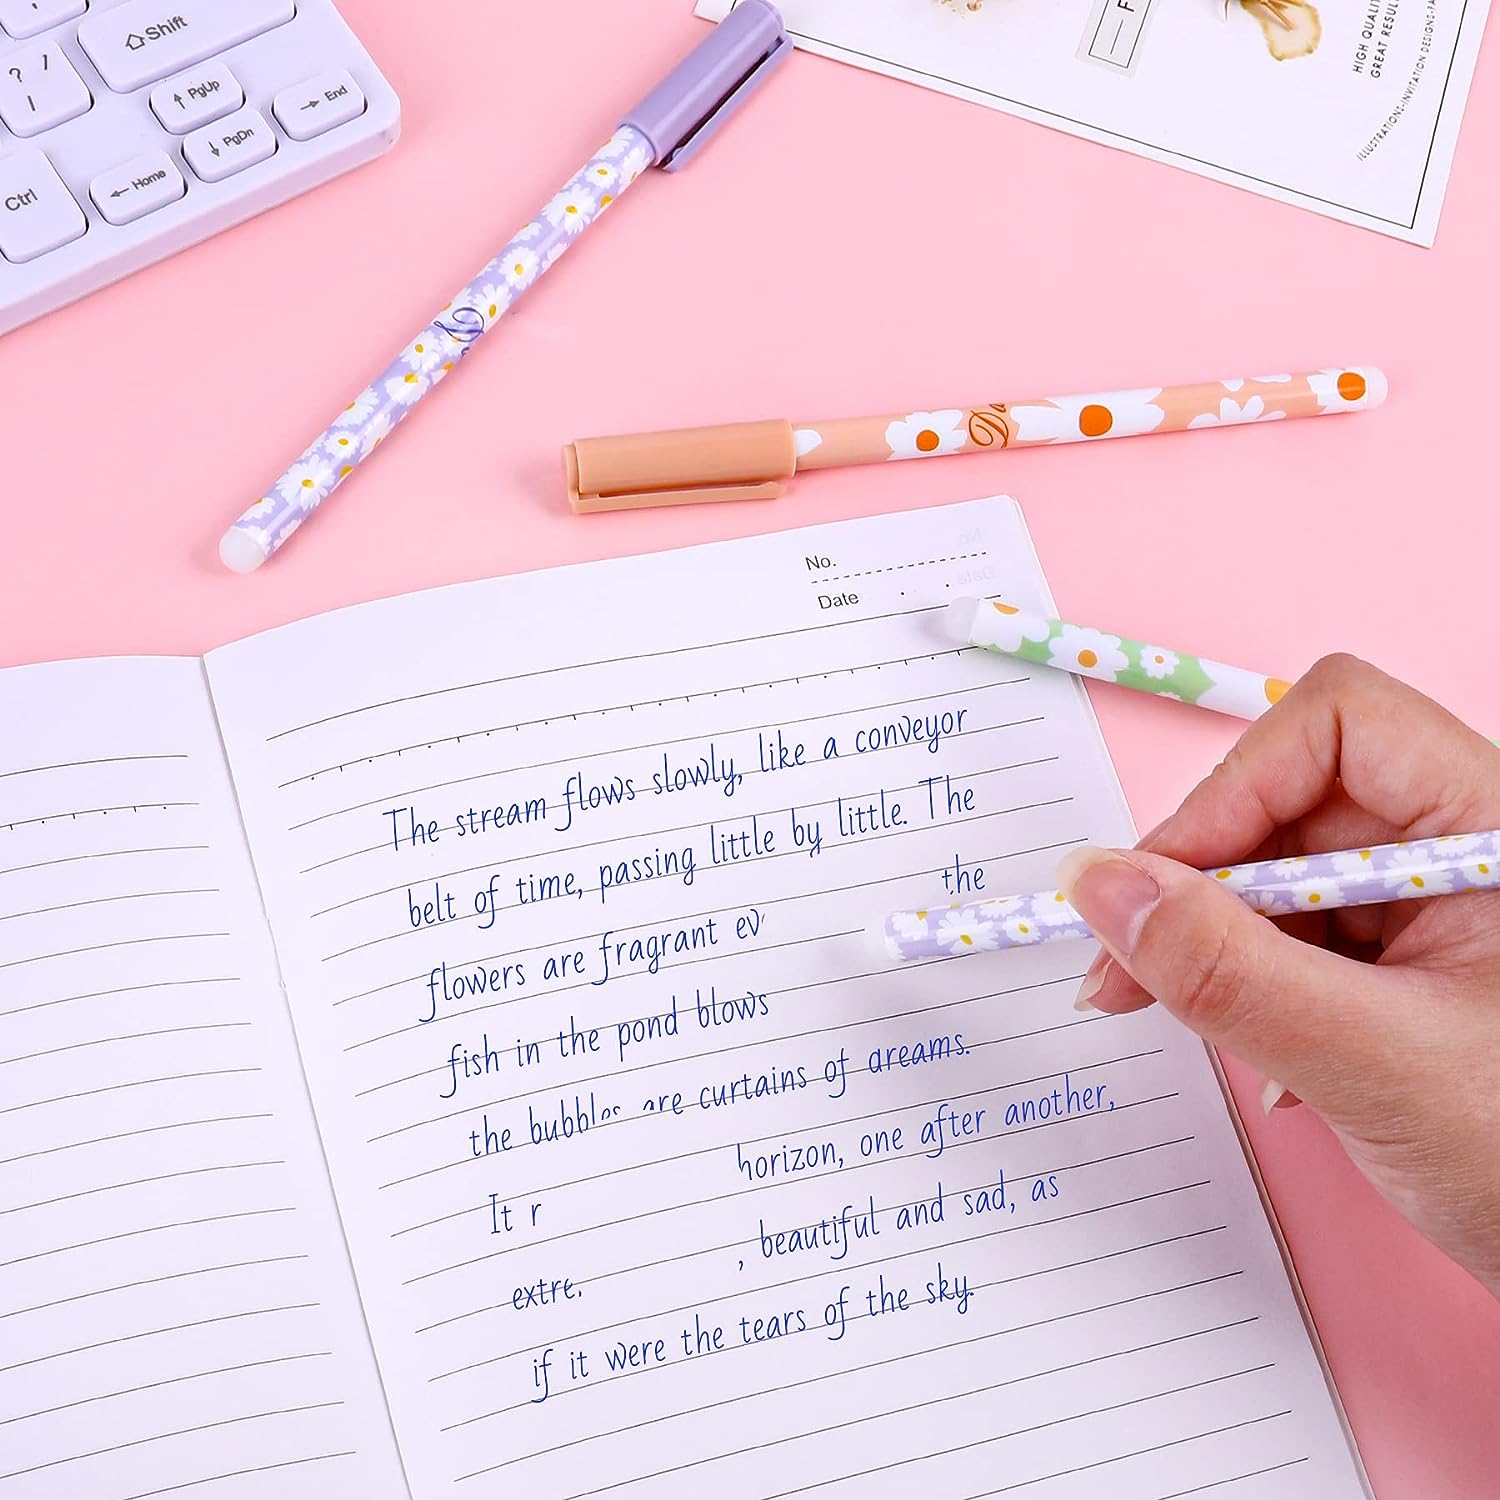 Shift
? /
PgUp
End
PgDn
Home
Ctrl
HIGH QUALI
GREAT RESUL
ILLUSTRATIONS-INVITATION DESIGNS-
No.
Date
The stream flows slowly, like a conveyor
belt of time, passing little by little. The
flowers are fragrant ev the
fish in the pond blows
the bubbles are curtains of dreams.
It r horizon, one after another,
extre , beautiful and sad, as
if it were the tears of the sky.